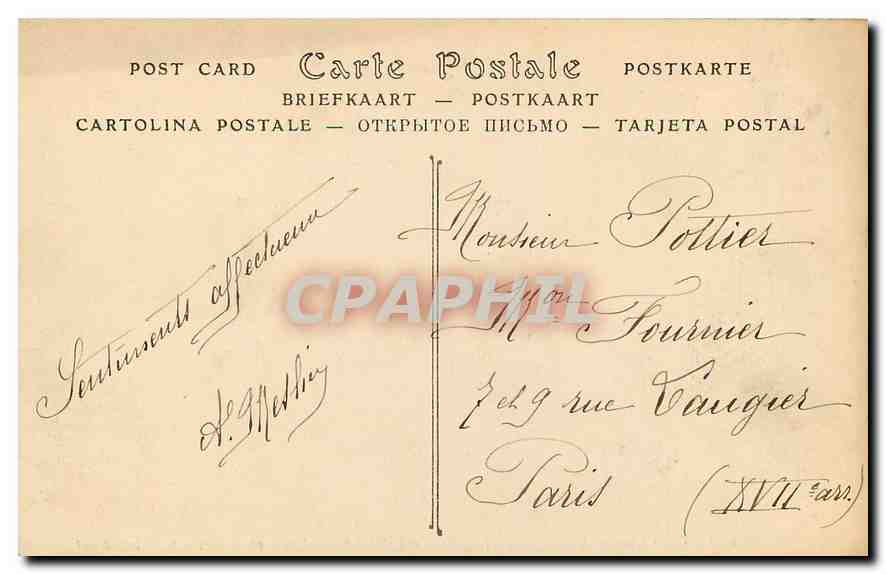 POST CARD Carte Postale POSTKARTE
BRIEFKAART — POSTKAART
CARTOLINA POSTALE — ОТКРЫТОЕ ПИСЬМО — TARJETA POSTAL
Sentiments affectueux
Monsieur Pottier
Mon Fournier
7 et 9 rue Laugier
Paris (XVIIe arr.)
CPAPHIL